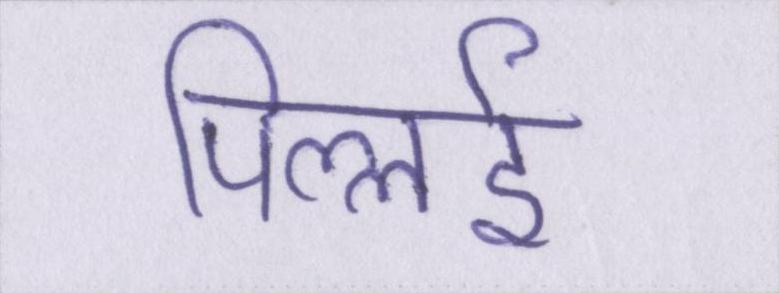 पिल्लई